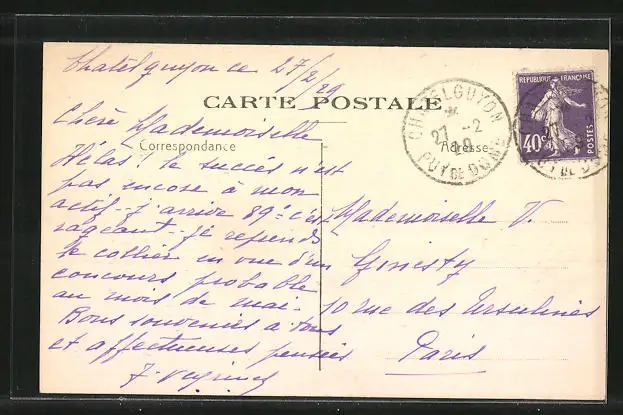 Chatelguyon ce 27/2/29
CARTE POSTALE
Chère Mademoiselle
Correspondance
Adresse
Hélas! le succès n'est
pas encore à mon
actif - j'arrive 89e c'est
rageant - je reprends
le collier en vue d'un
concours probable
au mois de mai -
Bons souvenirs à tous
et affectueuses pensées
Mademoiselle V.
Ginesty
10 rue des Ursulines
Paris
CHATELGUYON
27 -2
29
PUY DE DOME
REPUBLIQUE FRANÇAISE
40c
POSTES